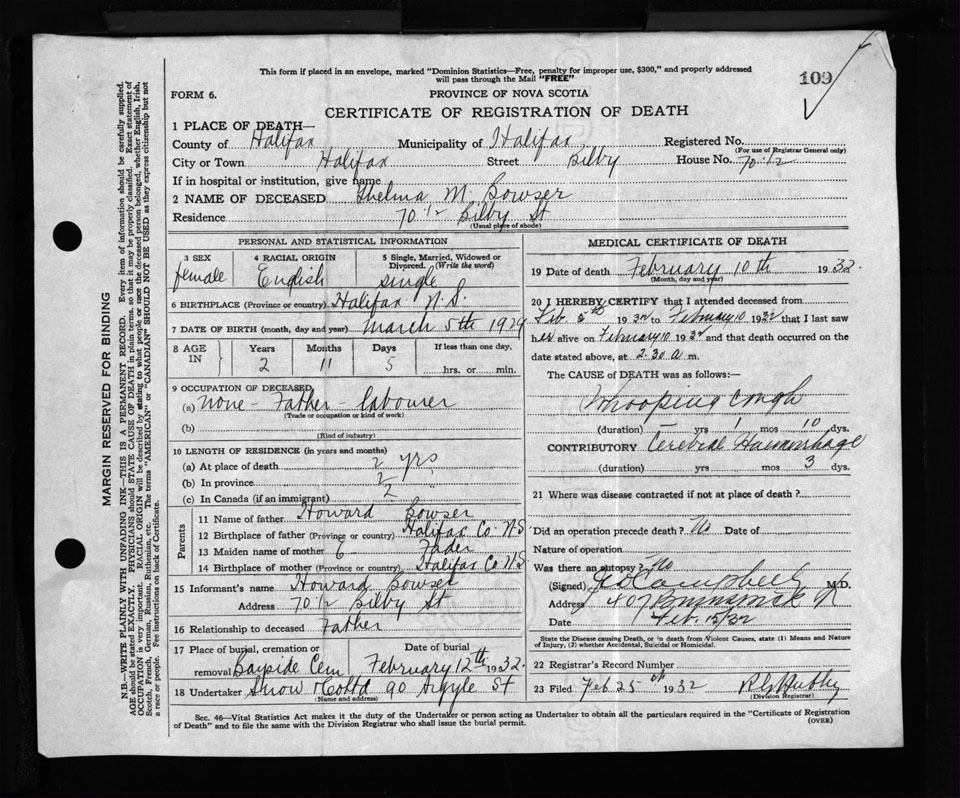 This form if placed in an envelope, marked "Dominion Statistics—Free, penalty for improper use, $300," and properly addressed
will pass through the Mail "FREE"
109
FORM 6.
PROVINCE OF NOVA SCOTIA
CERTIFICATE OF REGISTRATION OF DEATH
1 PLACE OF DEATH—
County of Halifax Municipality of Halifax Registered No.
(For use of Registrar General only)
City or Town Halifax Street Bilby House No. 70 1/2
If in hospital or institution, give name
2 NAME OF DECEASED Thelma M. Bowser
Residence 70 1/2 Bilby St
(Usual place of abode)
PERSONAL AND STATISTICAL INFORMATION
3 SEX 4 RACIAL ORIGIN 5 Single, Married, Widowed or
Divorced. (Write the word)
female English single
6 BIRTHPLACE (Province or country) Halifax N.S.
7 DATE OF BIRTH (month, day and year) March 5th 1929
8 AGE IN Years Months Days If less than one day,
2 11 5 hrs. or min.
9 OCCUPATION OF DECEASED
(a) None - Father - labourer
(Trade or occupation or kind of work)
(b)
(Kind of industry)
10 LENGTH OF RESIDENCE (in years and months)
(a) At place of death 2 yrs
(b) In province 2
(c) In Canada (if an immigrant) 2
Parents
11 Name of father Howard Bowser
12 Birthplace of father (Province or country) Halifax Co. N.S
13 Maiden name of mother E Fader
14 Birthplace of mother (Province or country) Halifax Co. N.S
15 Informant's name Howard Bowser
Address 70 1/2 Bilby St
16 Relationship to deceased Father
17 Place of burial, cremation or Date of burial
removal Bayside Cem February 12th 1932
18 Undertaker Snow & Co Ltd 90 Argyle St
(Name and address)
MEDICAL CERTIFICATE OF DEATH
19 Date of death February 10th 1932
(Month, day and year)
20 I HEREBY CERTIFY that I attended deceased from
Feb. 5th 1932 to February 10 1932 that I last saw
her alive on February 10 1932 and that death occurred on the
date stated above, at 2.30 a m.
The CAUSE OF DEATH was as follows:—
Whooping cough
(duration) — yrs 1 mos 10 dys.
CONTRIBUTORY Cerebral Haemorrhage
(duration) yrs mos 3 dys.
21 Where was disease contracted if not at place of death?
Did an operation precede death? No Date of
Nature of operation
Was there an autopsy? No
(Signed) Campbell M.D.
Address 407
Date Feb. 15/32
State the Disease causing Death, or in death from Violent Causes, state (1) Means and Nature
of Injury, (2) whether Accidental, Suicidal or Homicidal.
22 Registrar's Record Number
23 Filed Feb 25th 1932
(Division Registrar)
Sec. 46—Vital Statistics Act makes it the duty of the Undertaker or person acting as Undertaker to obtain all the particulars required in the "Certificate of Registration
of Death" and to file the same with the Division Registrar who shall issue the burial permit.
(OVER)
MARGIN RESERVED FOR BINDING
N.B.—WRITE PLAINLY WITH UNFADING INK—THIS IS A PERMANENT RECORD. Every item of information should be carefully supplied.
AGE should be stated EXACTLY. PHYSICIANS should STATE CAUSE OF DEATH in plain terms, so that it may be properly classified. Exact statement of
OCCUPATION is very important. RACIAL ORIGIN will be described by stating to what people or race the deceased person belonged, whether English, Irish,
Scotch, French, German, Russian, Ruthenian, etc. The terms "AMERICAN" or "CANADIAN" SHOULD NOT BE USED as they express citizenship but not
a race or people. Fee instructions on back of Certificate.